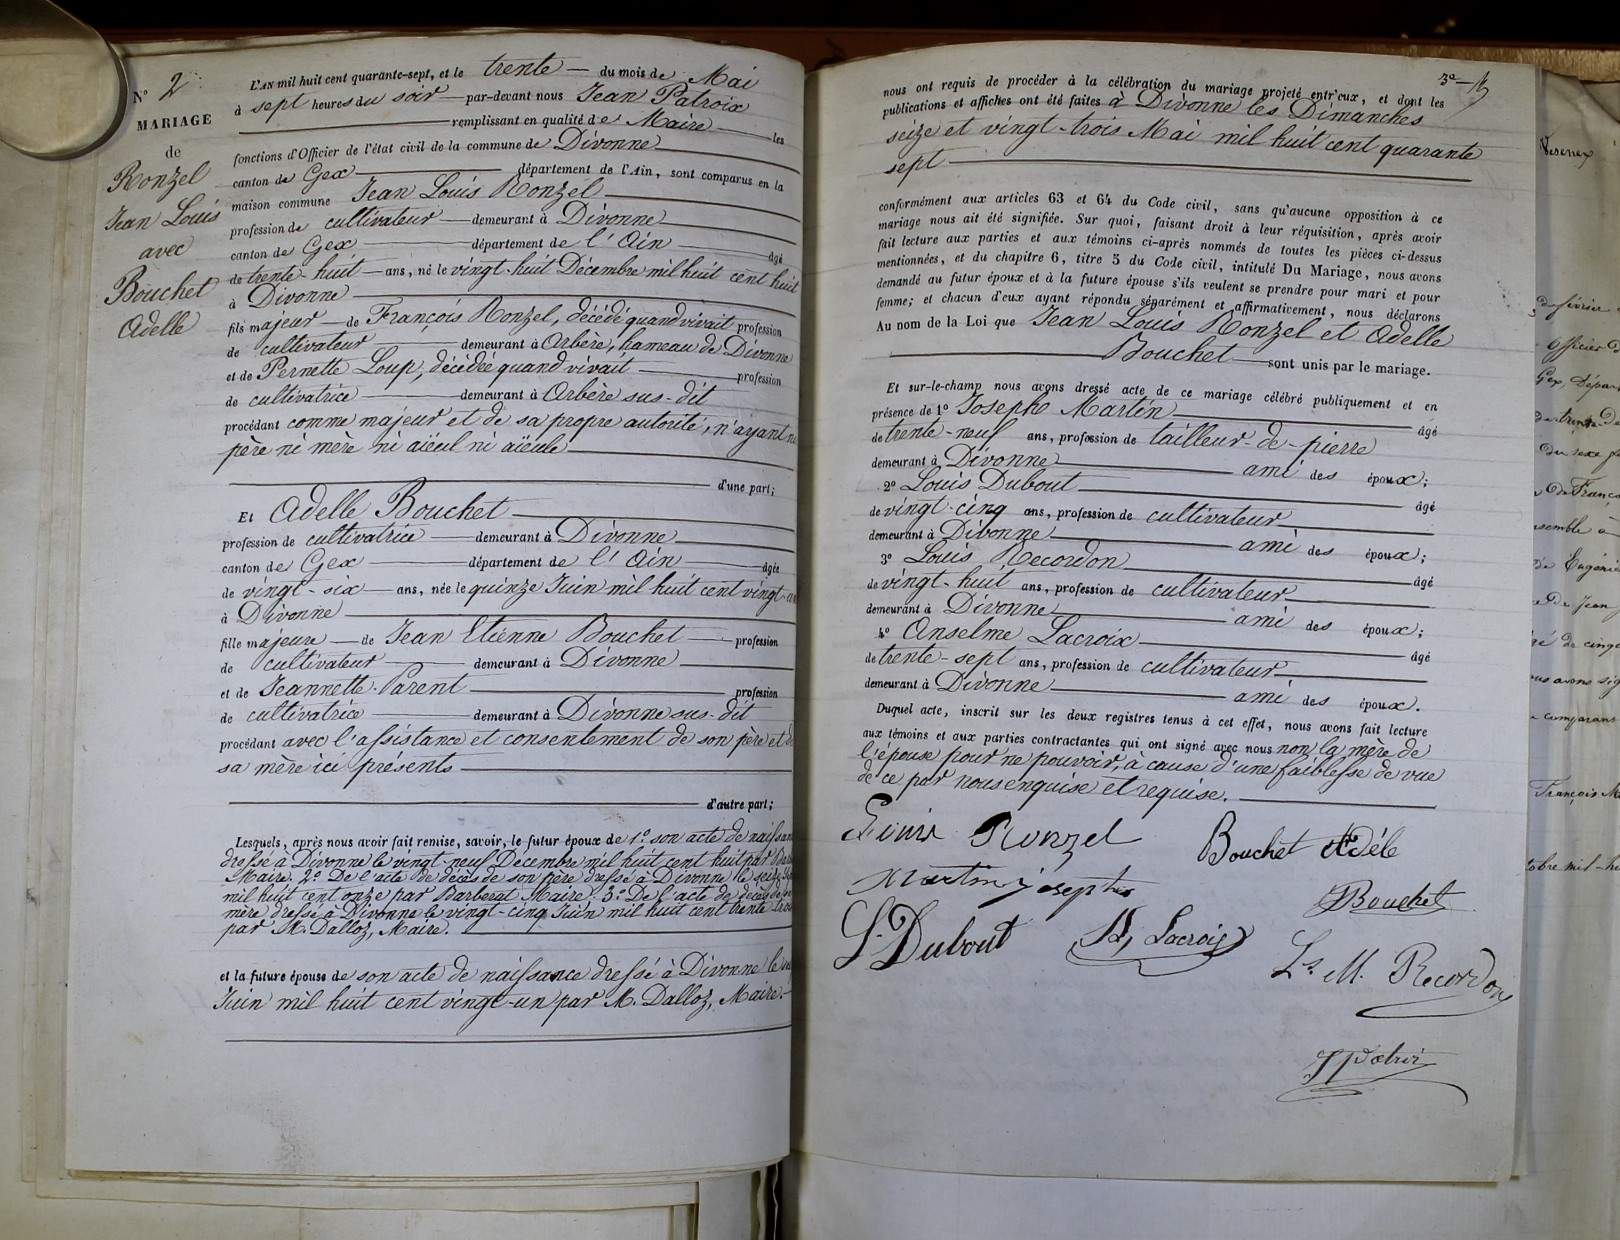 N° 2
MARIAGE
de
Ronzel
Jean Louis
avec
Bouchet
Adelle
L'AN mil huit cent quarante-sept, et le trente du mois de Mai
à sept heures du soir par-devant nous Jean Patroix
remplissant en qualité de Maire les
fonctions d'Officier de l'état civil de la commune de Divonne
canton de Gex département de l'Ain, sont comparus en la
maison commune Jean Louis Ronzel
profession de cultivateur demeurant à Divonne
canton de Gex département de l'Ain âgé
de trente-huit ans, né le vingt-huit Décembre mil huit cent huit
à Divonne
fils majeur de François Ronzel, décédé quand vivait profession
de cultivateur demeurant à Arbère, hameau de Divonne
et de Pernette Loup, décédée quand vivait profession
de cultivatrice demeurant à Arbère sus-dit
procédant comme majeur et de sa propre autorité, n'ayant ni
père ni mère ni aïeul ni aïeule
d'une part;
Et Adelle Bouchet
profession de cultivatrice demeurant à Divonne
canton de Gex département de l'Ain âgée
de vingt-six ans, née le quinze Juin mil huit cent vingt-un
à Divonne
fille majeure de Jean Etienne Bouchet profession
de cultivateur demeurant à Divonne
et de Jeannette Parent profession
de cultivatrice demeurant à Divonne sus-dit
procédant avec l'assistance et consentement de son père et de
sa mère ici présents
d'autre part;
Lesquels, après nous avoir fait remise, savoir, le futur époux de 1° son acte de naissance
dressé à Divonne le vingt-neuf Décembre mil huit cent huit par
Maire. 2° De l'acte de décès de son père dressé à Divonne le seize
mil huit cent onze par Barberat Maire. 3° De l'acte de décès de sa
mère dressé à Divonne le vingt-cinq Juin mil huit cent trente trois
par M. Dalloz, Maire.
et la future épouse de son acte de naissance dressé à Divonne le
Juin mil huit cent vingt-un par M. Dalloz, Maire.
3e
nous ont requis de procéder à la célébration du mariage projeté entr'eux, et dont les
publications et affiches ont été faites à Divonne les Dimanches
seize et vingt-trois Mai mil huit cent quarante
sept
conformément aux articles 63 et 64 du Code civil, sans qu'aucune opposition à ce
mariage nous ait été signifiée. Sur quoi, faisant droit à leur réquisition, après avoir
fait lecture aux parties et aux témoins ci-après nommés de toutes les pièces ci-dessus
mentionnées, et du chapitre 6, titre 5 du Code civil, intitulé Du Mariage, nous avons
demandé au futur époux et à la future épouse s'ils veulent se prendre pour mari et pour
femme; et chacun d'eux ayant répondu séparément et affirmativement, nous déclarons
Au nom de la Loi que Jean Louis Ronzel et Adelle
Bouchet sont unis par le mariage.
Et sur-le-champ nous avons dressé acte de ce mariage célébré publiquement et en
présence de 1° Joseph Martin âgé
de trente-neuf ans, profession de tailleur-de-pierre
demeurant à Divonne ami des époux;
2° Louis Dubout âgé
de vingt-cinq ans, profession de cultivateur
demeurant à Divonne ami des époux;
3° Louis Recordon âgé
de vingt-huit ans, profession de cultivateur
demeurant à Divonne ami des époux;
4° Anselme Lacroix âgé
de trente-sept ans, profession de cultivateur
demeurant à Divonne ami des époux.
Duquel acte, inscrit sur les deux registres tenus à cet effet, nous avons fait lecture
aux témoins et aux parties contractantes qui ont signé avec nous non la mère de
l'épouse pour ne pouvoir, à cause d'une faiblesse de vue
de ce par nous enquise et requise.
Louis Ronzel
Bouchet Adéle
Martin joseph
Bouchet
L. Dubout
A, Lacroix
Ls. M. Recordon